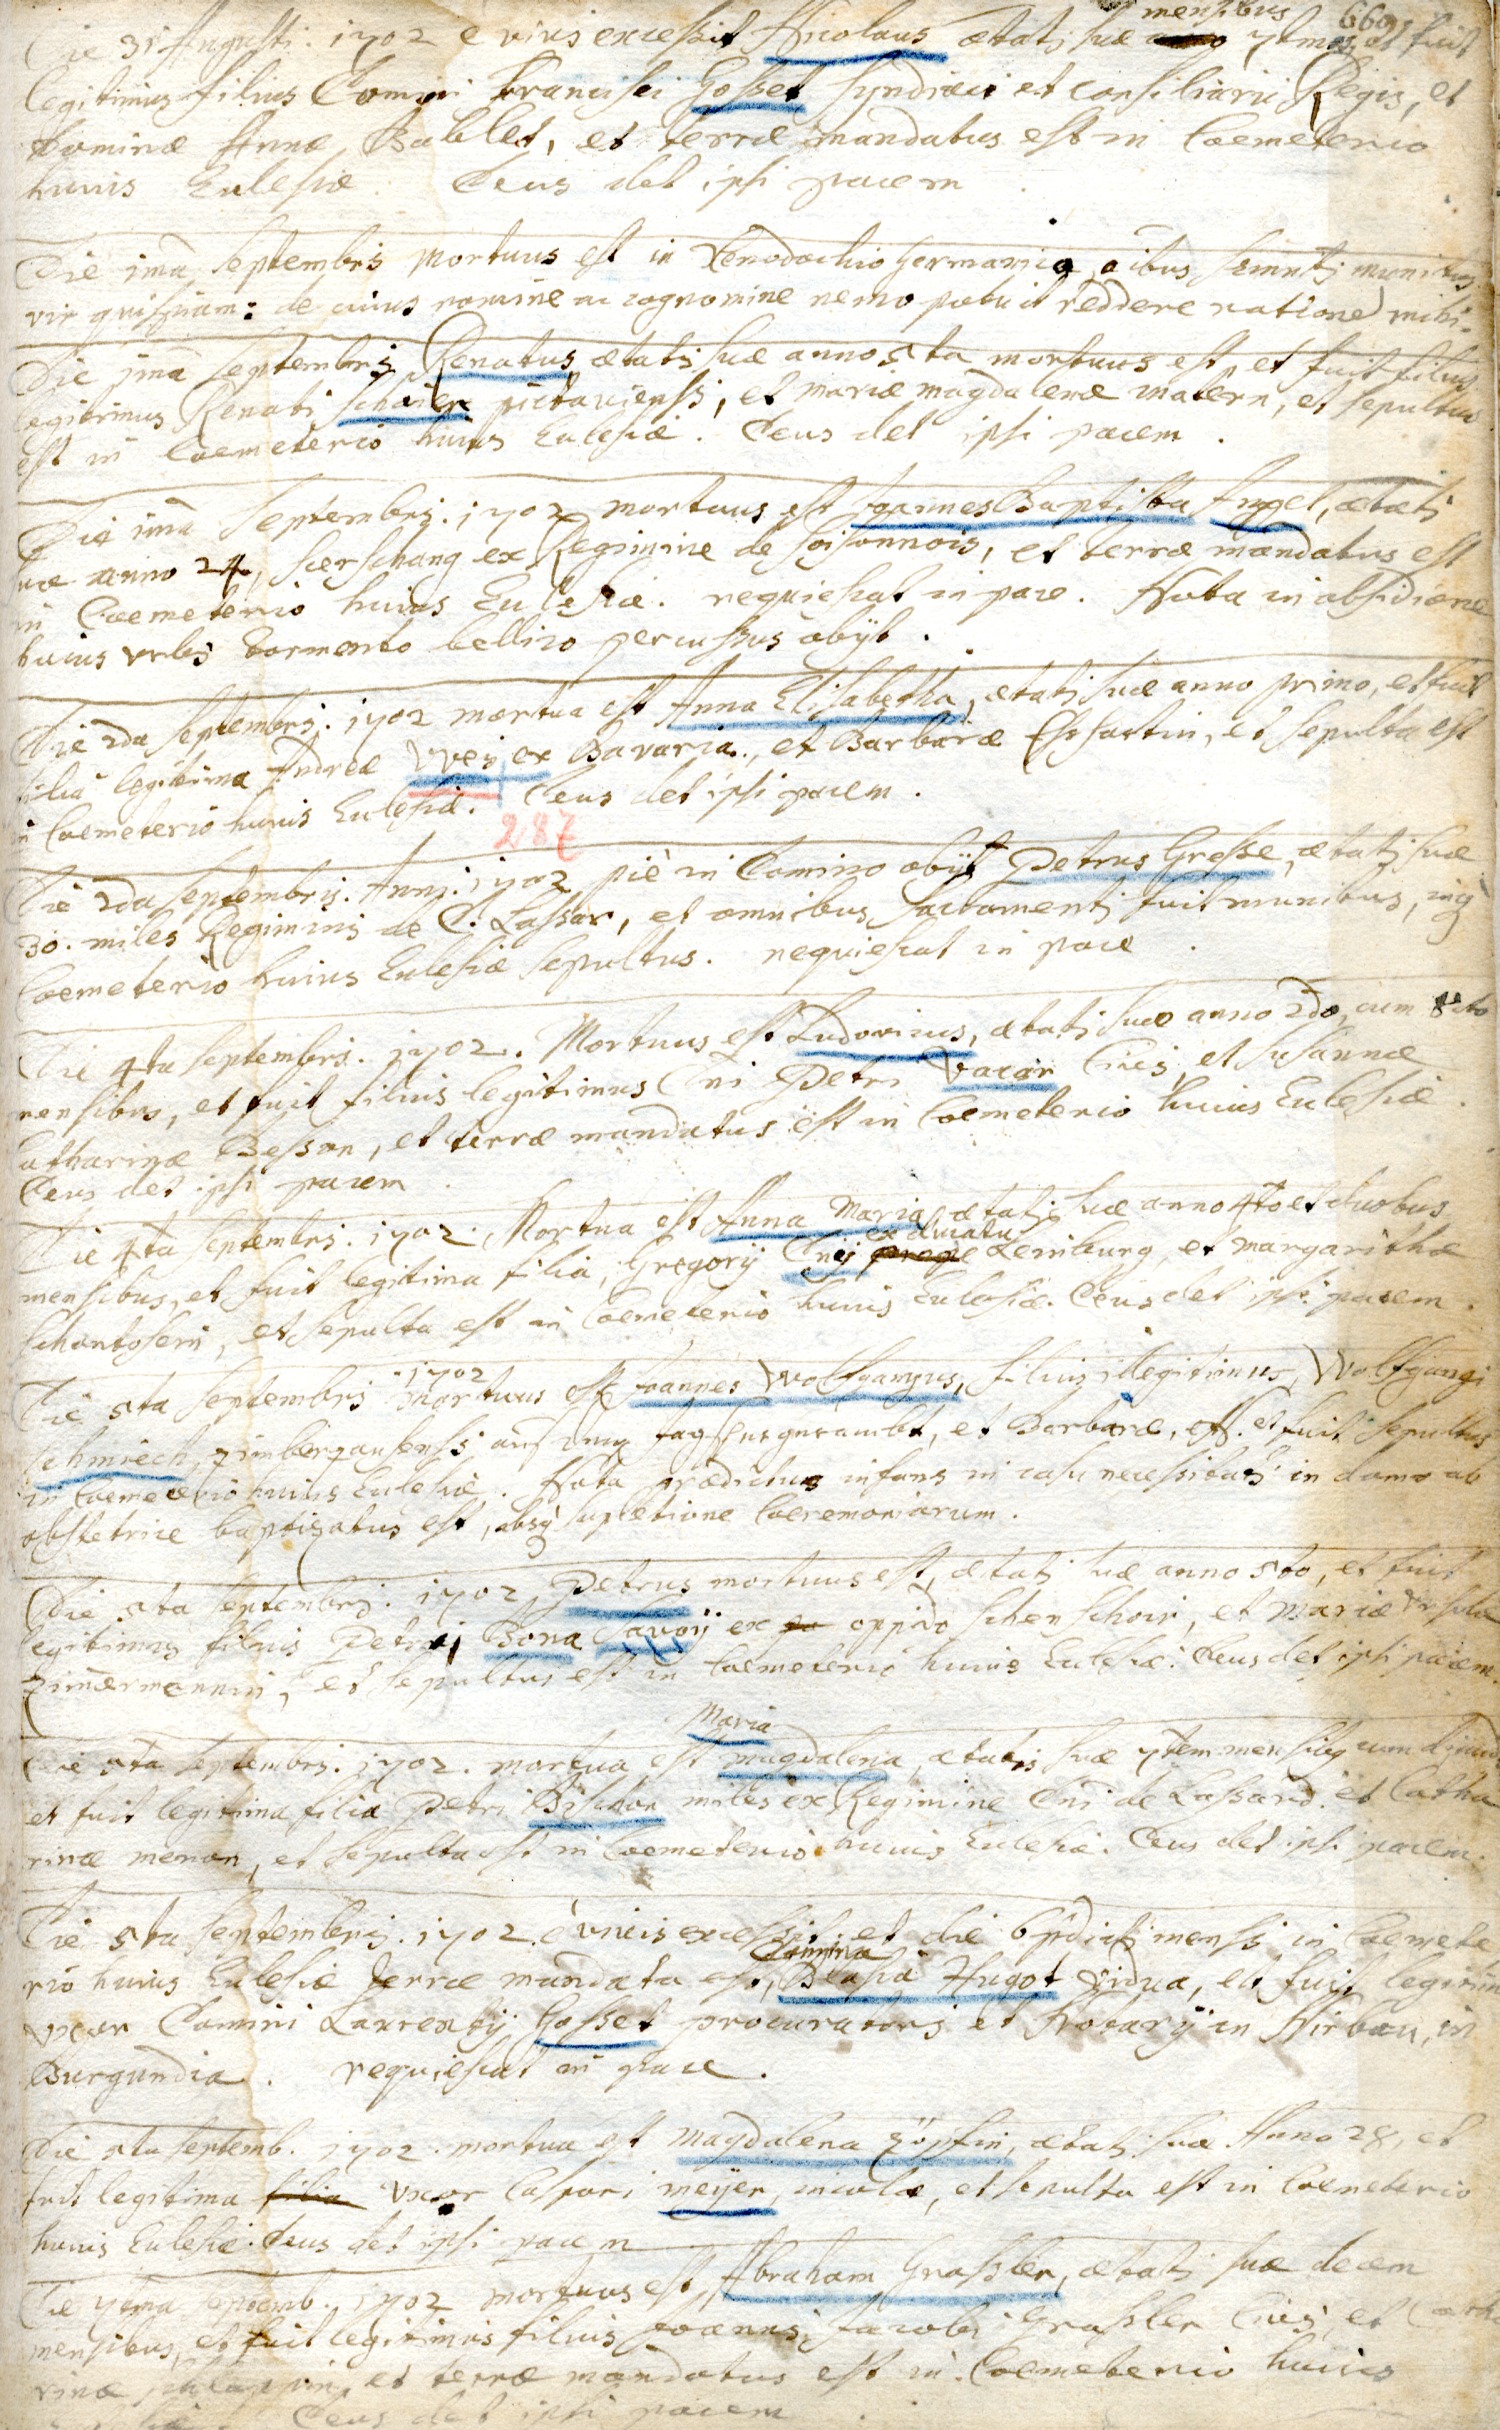 mensibus 669
Die 31 Augusti. 1702 e vivis excessit Nicolaus ætatis suæ 7tem et fuit
legitimus filius Domini Francisci Gosset Syndici et consiliarii Regis, et
Dominæ Annæ Bablet, et terræ mandatus est in Coemeterio
huius Eclesiæ. Deus det ipsi pacem.
Die ima Septembris Mortuus est in Xenodochio Germanico, oibus Scmntis munitus
vir quispiam: de cuius nomine ac cognomine nemo potuit reddere ratione mihi.
Die ima Septembris Renatus ætatis suæ anno 5to mortuus est, et fuit filius
legitimus Renati pictaviensis, et Mariæ Magdalenæ Matern, et sepultus
est in Coemeterio huius Eclesiæ. Deus det ipsi pacem.
Die ima Septembris. 1702 mortuus est Joannes Baptista Angel, ætatis
suæ anno 24, Serschang ex Regimine de Soisonnois, et terræ mandatus est
in Coemeterio huius Eclesiæ. requiescat in pace. Nota in obsidione
huius urbis tormento bellico percussus obijt.
Die 2da Septembris. 1702 mortua est Anna Elisabetha, ætatis suæ anno primo, et fuit
filia legitima Andreæ Wei ex Bavaria, et Barbaræ, et sepulta est
in Coemeterio huius Eclesiæ. Deus det ipsi pacem.
287
Die 2da Septembris. Anni. 1702 piè in Domino obijt Petrus Grosse, ætatis suæ
30. miles Regiminis de D. Lassar, et omnibus Sacramentis fuit munitus, inq
Coemeterio huius Eclesiæ sepultus. requiescat in pace.
Die 4ta Septembris. 1702. Mortuus est Ludovicus, ætatis suæ anno 2do, cum octo
mensibus, et fuit filius legitimus Dni Petri Vacar Civis, et Susannæ
Catharinæ Besson, et terræ mandatus est in Coemeterio huius Eclesiæ.
Deus det ipsi pacem.
Die 4ta Septembris. 1702. Mortua est Anna Maria ætatis suæ anno 4to et duobus
ex ducatu
mensibus, et fuit legitima filia, Gregorij Lemburg, et Margarithæ
et sepulta est in Coemeterio huius Eclesiæ. Deus det ipsi pacem.
1702
Die 5ta Septembris mortuus est Joannes Wolfgangus, filius illegitimus, Wolfgangi
Schmiech, et Barbaræ, et fuit sepultus
in Coemeterio huius Eclesiæ. Nota prædictus infans in casu necessitatis in domo ab
obstetrice baptizatus est, absq supletione Coeremoniarum.
Die 5ta Septembris. 1702, Petrus mortuus est, ætatis suæ anno 5to, et fuit
legitimus filius Petri Bona Savoij ex oppido, et Mariæ Ursulæ
Zimermannin, et sepultus est in Coemeterio huius Eclesiæ. Deus det ipsi pacem.
Maria
Die 5ta Septembris. 1702. mortua est Magdalena, ætatis suæ 7tem mensium cum
et fuit legitima filia Petri Bischon miles ex Regimine Dni de Lassard. et Catha
rinæ Menon, et sepulta est in Coemeterio huius Eclesiæ. Deus det ipsi pacem.
Die 5ta Septembris. 1702. è vivis excessit, et die 6 pdicti mensis in Coemete
Domina
rio huius Eclesiæ terræ mandata est, Blasia Hugot vidua, et fuit legitima
Uxor Domini Laurentij Gosset procuratoris et Notarij in, in
Burgundia. requiescat in pace.
Die 5ta Septemb. 1702. mortua est Magdalena Zöpfin, ætatis suæ Anno 28, et
fuit legitima filia Uxor Caspari Meijer, incolæ, et sepulta est in Coemeterio
huius Eclesiæ. Deus det ipsi pacem
Die 7tima Septemb. 1702 mortuus est, Abraham Grassler, ætatis suæ decem
mensibus, et fuit legitimus filius Joannis Jacobi Grassler Civis, et Cathe
rinæ, et terræ mandatus est in Coemeterio huius
Deus det ipsi pacem.